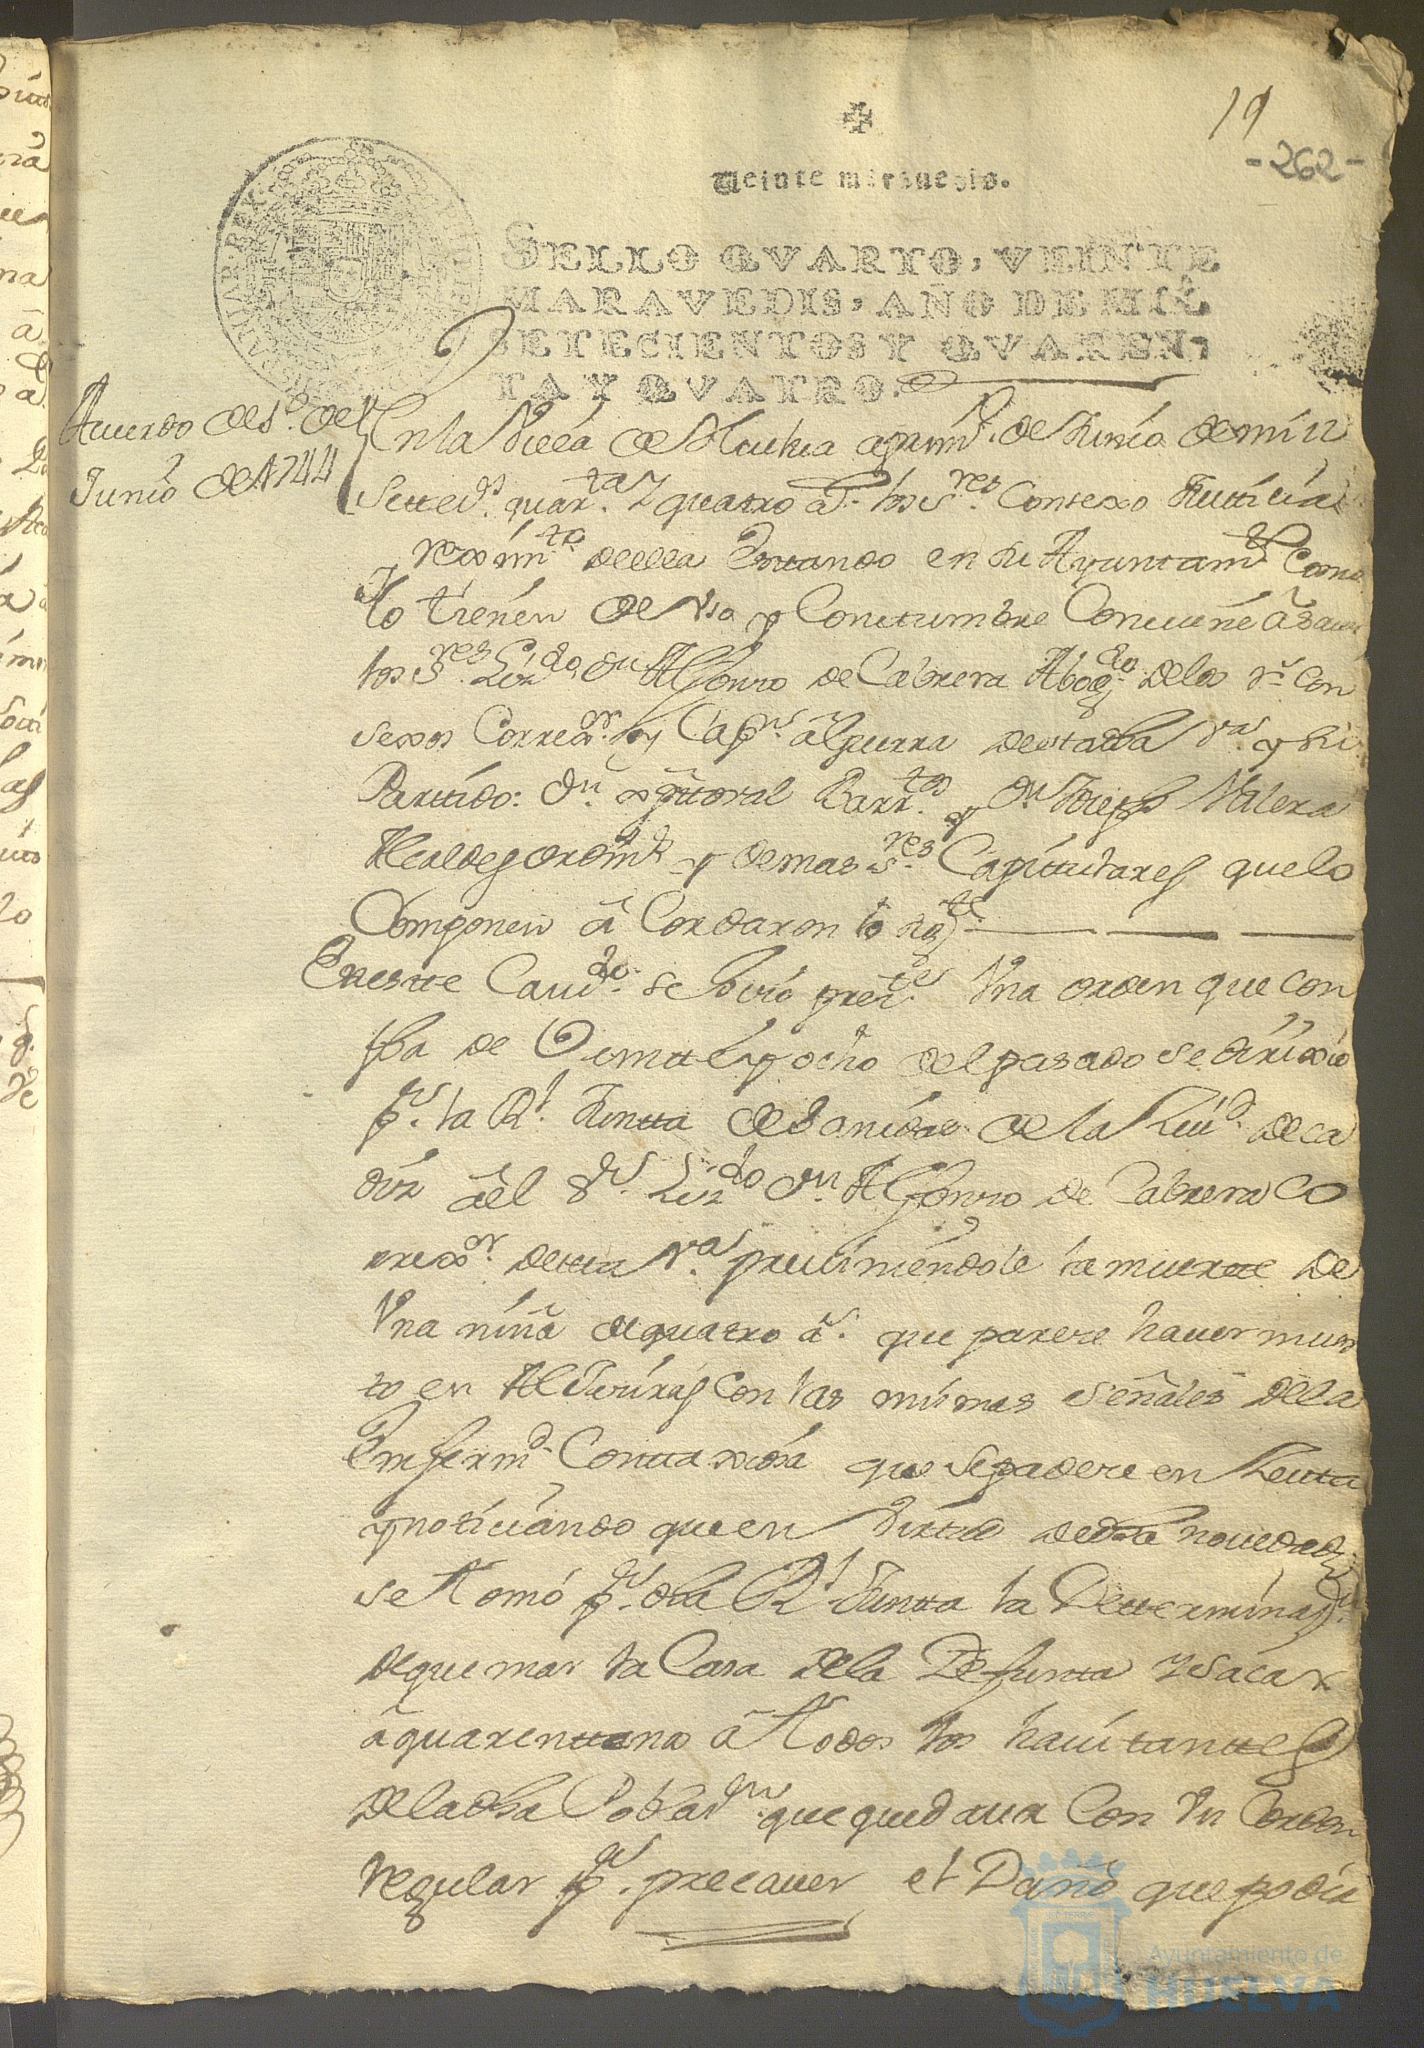 19
-262-
Veinte maravedis.
SELLO QVARTO, VEINTE
MARAVEDIS, AÑO DE MIL
SETECIENTOS Y QVAREN-
TA Y QVATRO.
Acuerdo de s.º de
Junio de 1744
En la Villa de Huelva a prim.º de Junio de mill
Settec.s quar.ta y quatro a.s los S.res Consexo Justicia
reximi.to de ella Estando en su Ayuntam.to Como
lo tienen de Uso y Costumbre Conviene â saver
los S.res Liz.do Dn Alfonso de Cabrera Abog.do de los R.s Con
sexos Corre.or y Cap.n â guerra de esta dha V.a y su
Partido: Dn Xptoval Barr.tos y Dn Joseph Valera
Alcaldes ordin.s y demas S.res Capitulares que lo
Componen â Cordaron lo sig.te
En este Cavi.do se Vio pres.te Una orden que con
fha de Veinte y ocho del pasado se dirixio
p.r la R.l Junta de Sanidad de la Ciu.d de Ca
diz âel S.r Liz.do Dn Alfonso de Cabrera Co
rrex.or desta V.a previniendole la muerte de
Una niña de quatro a.s que parece haver muer
to en Algeciras con las mismas señales de la
Enferm.d Contaxiosa que se padece en Ceuta
y noticiando que en Virtud de dha novedad
se tomó p.r dha R.l Junta la Determinaz.n
de quemar la Casa de la Defunta y sacar
â quarenttena â todos los havitanttes
de la dha Poblaz.n que quedava Con Un Cordon
regular p.r precaver el Daño que podia
Ayuntamiento de
HUELVA